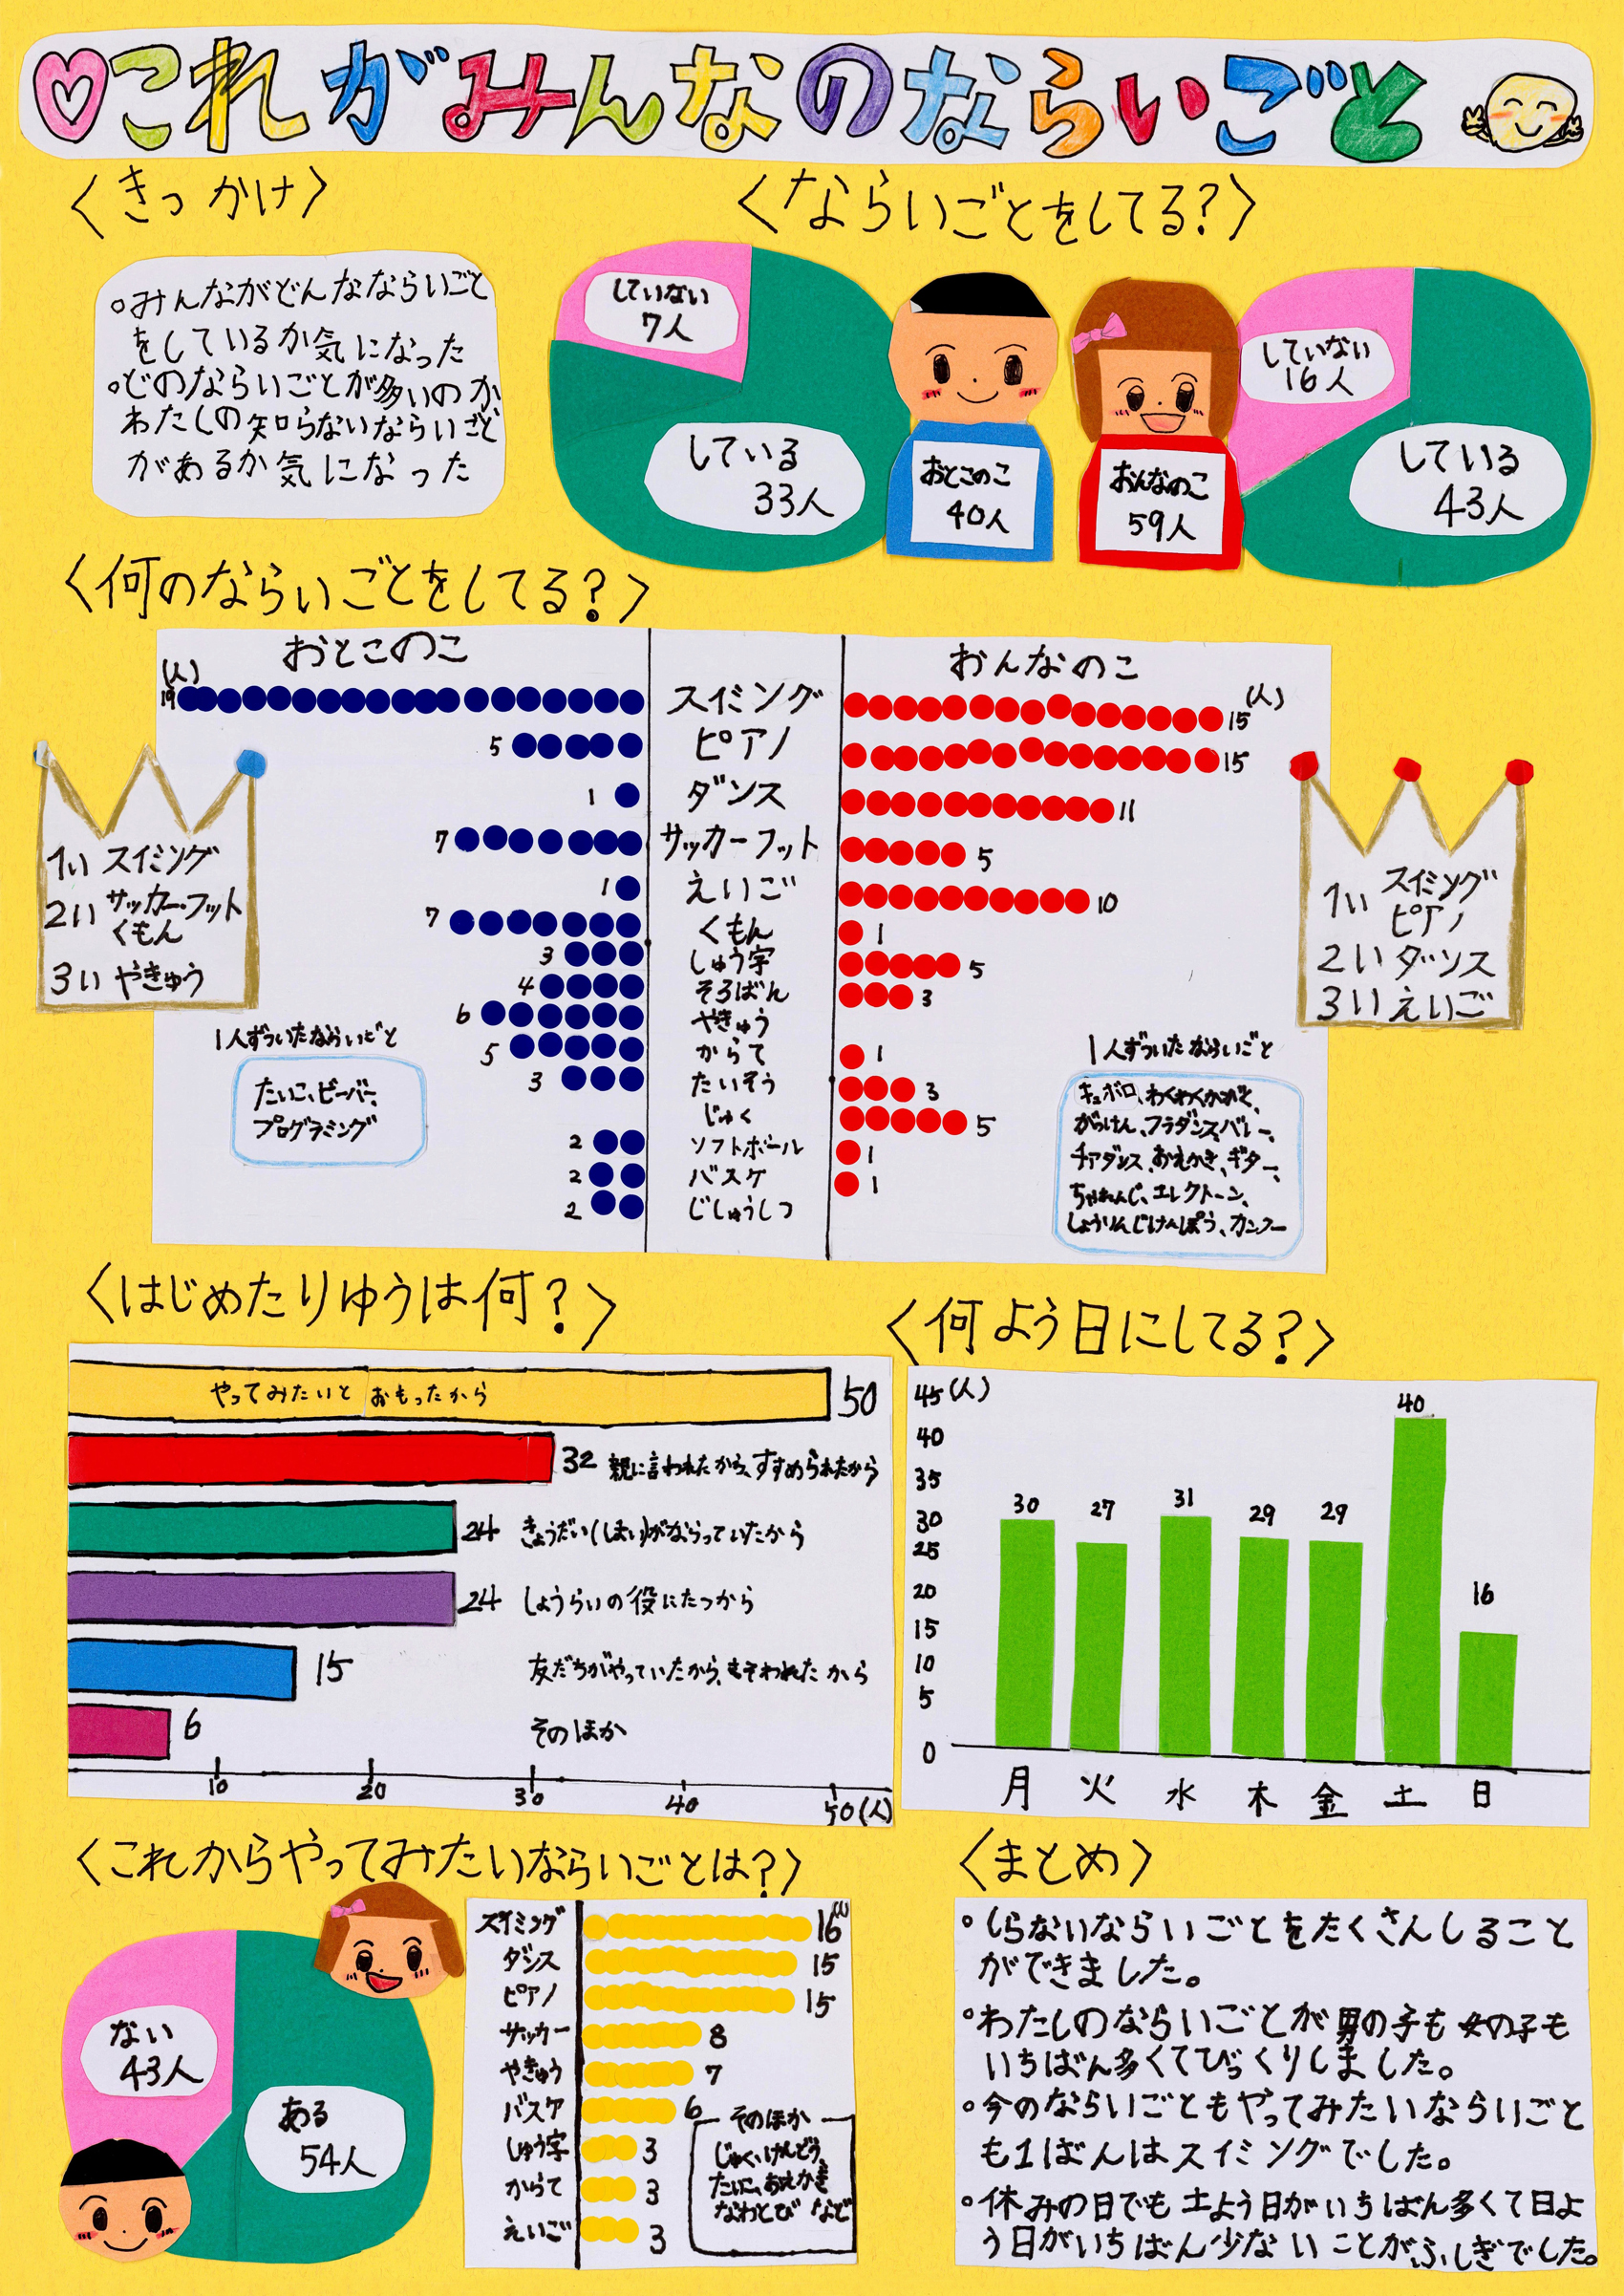 これがみんなのならいごと
〈きっかけ〉
。みんながどんなならいごと
をしているか気になった
。どのならいごとが多いのか
わたしの知らないならいごと
があるか気になった
〈ならいごとをしてる？〉
していない
7人
している
33人
おとこのこ
40人
おんなのこ
59人
していない
16人
している
43人
〈何のならいごとをしてる？〉
おとこのこ
おんなのこ
(人)
(人)
19 スイミング 15
5 ピアノ 15
1 ダンス 11
7 サッカーフット 5
1 えいご 10
7 くもん 1
3 しゅう字 5
4 そろばん 3
6 やきゅう
5 からて 1
3 たいそう 3
じゅく 5
2 ソフトボール 1
2 バスケ 1
2 じしゅうしつ
1い スイミング
2い サッカー・フット
くもん
3い やきゅう
1い スイミング
ピアノ
2い ダンス
3い えいご
1人ずついたならいごと
たいこ、ビーバー、
プログラミング
1人ずついたならいごと
キュボロ、わくわくかがく、
がっけん、フラダンス、バレー、
チアダンス、おえかき、ギター、
ちゃれんじ、エレクトーン、
しょうりんじけんぽう、カンフー
〈はじめたりゆうは何？〉
やってみたいとおもったから 50
32 親に言われたから、すすめられたから
24 きょうだい(しまい)がならっていたから
24 しょうらいの役にたつから
15 友だちがやっていたから、さそわれたから
6 そのほか
10 20 30 40 50(人)
〈何よう日にしてる？〉
45(人)
40
35
30
25
20
15
10
5
0
30 27 31 29 29 40 16
月 火 水 木 金 土 日
〈これからやってみたいならいごとは？〉
ない
43人
ある
54人
スイミング 16(人)
ダンス 15
ピアノ 15
サッカー 8
やきゅう 7
バスケ 6
しゅう字 3
からて 3
えいご 3
そのほか
じゅく、けんどう、
たいこ、おえかき
なわとび など
〈まとめ〉
。しらないならいごとをたくさんしること
ができました。
。わたしのならいごとが男の子も女の子も
いちばん多くてびっくりしました。
。今のならいごともやってみたいならいごと
も1ばんはスイミングでした。
。休みの日でも土よう日がいちばん多くて日よ
う日がいちばん少ないことがふしぎでした。